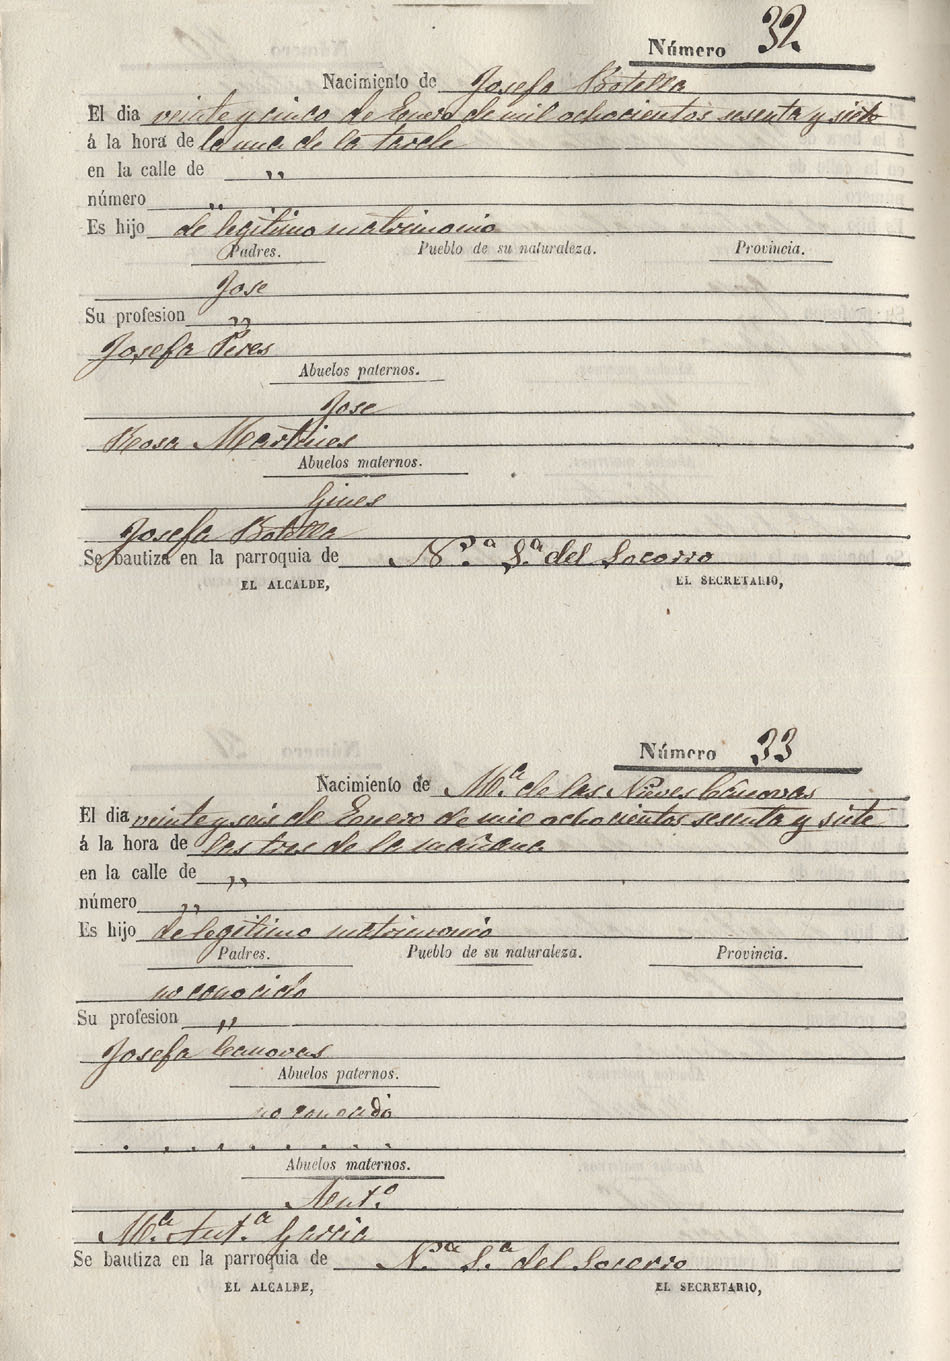 Número 32
Nacimiento de Josefa Botella
El dia veinte y cinco de Enero de mil ochocientos sesenta y siete
á la hora de la una de la tarde
en la calle de „
número „
Es hijo de legitimo matrimonio
Padres. Pueblo de su naturaleza. Provincia.
Jose
Su profesion „
Josefa Peres
Abuelos paternos.
Jose
Rosa Martines
Abuelos maternos.
Gines
Josefa Botella
Se bautiza en la parroquia de N.ª S.ª del Socorro
EL ALCALDE, EL SECRETARIO,
Número 33
Nacimiento de M.ª de las Nieves Cánovas
El dia veinte y seis de Enero de mil ochocientos sesenta y siete
á la hora de las tres de la mañana
en la calle de „
número „
Es hijo de legitimo matrimonio
Padres. Pueblo de su naturaleza. Provincia.
no conocido
Su profesion „
Josefa Canovas
Abuelos paternos.
no conocido
. . . . . . . . .
Abuelos maternos.
Ant.º
M.ª Ant.ª Garcia
Se bautiza en la parroquia de N.ª S.ª del Socorro
EL ALCALDE, EL SECRETARIO,